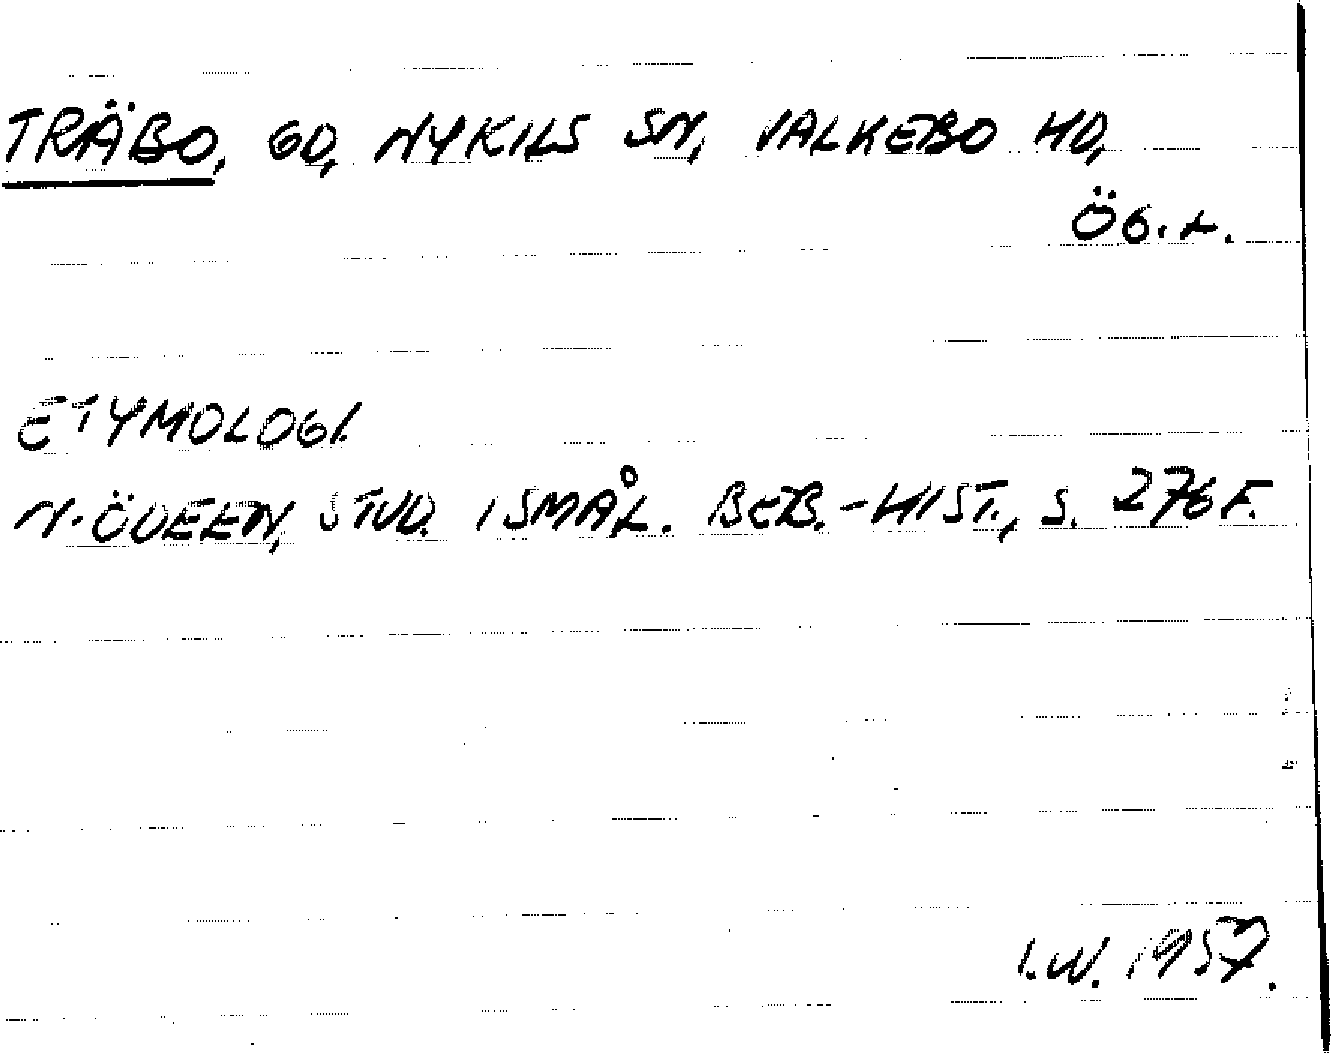 TRÄBO, GD, NYKILS SN, VALKEBO HD,
ÖG. L.
ETYMOLOGI.
N. ÖDEEN, STUD. I SMÅL. BEB.-HIST., S. 276 F.
I.W. 1957.